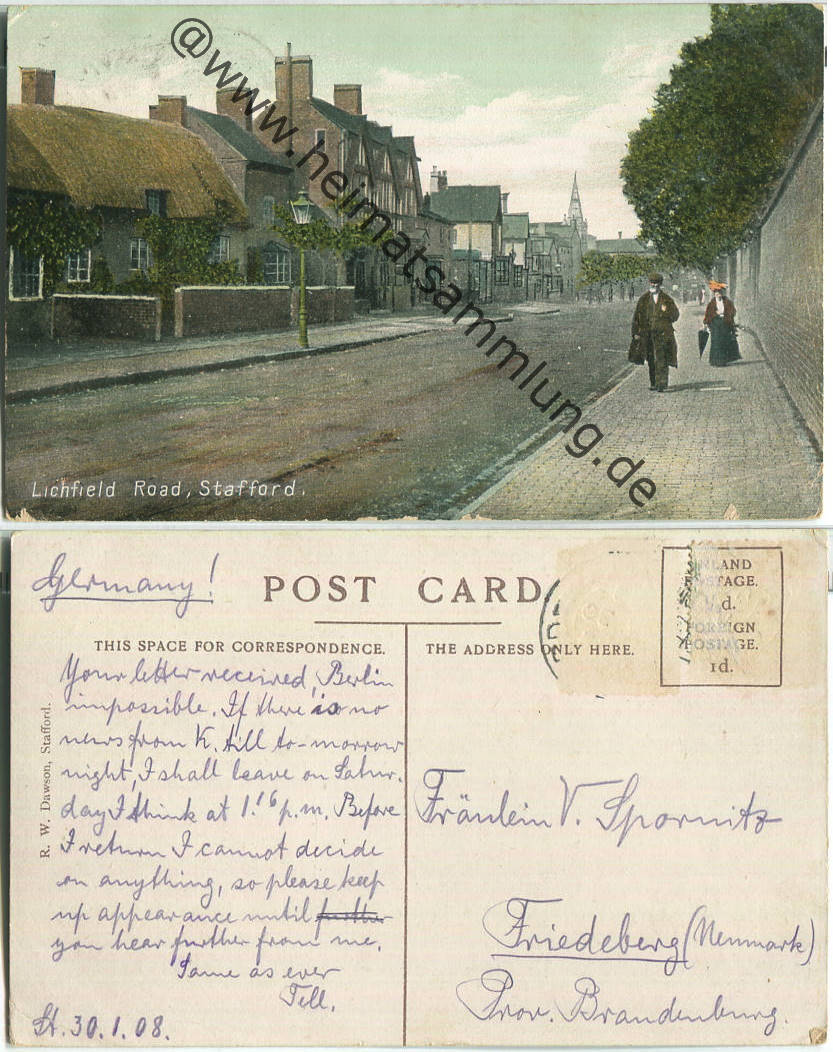 @www.heimatsammlung.de
Lichfield Road, Stafford.
Germany!
POST CARD
THIS SPACE FOR CORRESPONDENCE.
THE ADDRESS ONLY HERE.
INLAND
POSTAGE.
½d.
FOREIGN
POSTAGE.
1d.
R. W. Dawson, Stafford.
Your letter received, Berlin
impossible. If there is no
news from K. till to-morrow
night, I shall leave on Satur-
day I think at 1.16 p.m. Before
I return I cannot decide
on anything, so please keep
up appearance until further
you hear further from me.
Same as ever
Tell.
St. 30.1.08.
Fräulein V. Spornitz
Friedeberg (Neumark)
Prov. Brandenburg.